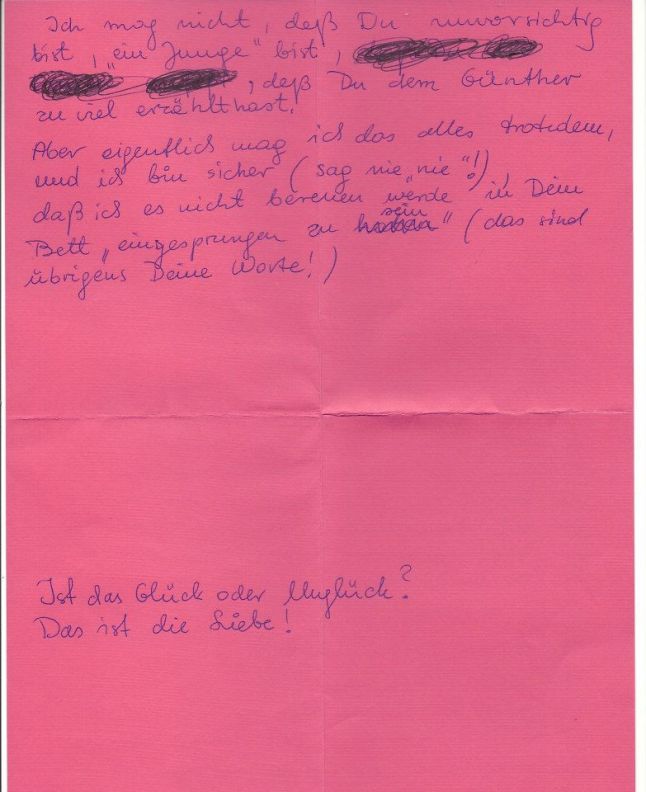 Ich mag nicht, deß Du unvorsichtig
bist, „ein Junge“ bist,
, deß Du dem Günther
zu viel erzählt hast.
Aber eigentlich mag ich das alles trotzdem,
und ich bin sicher (sag nie „nie“!),
daß ich es nicht bereuen werde in Dein
Bett „eingesprungen zu sein“ (das sind
übrigens Deine Worte!)
Ist das Glück oder Unglück?
Das ist die Liebe!